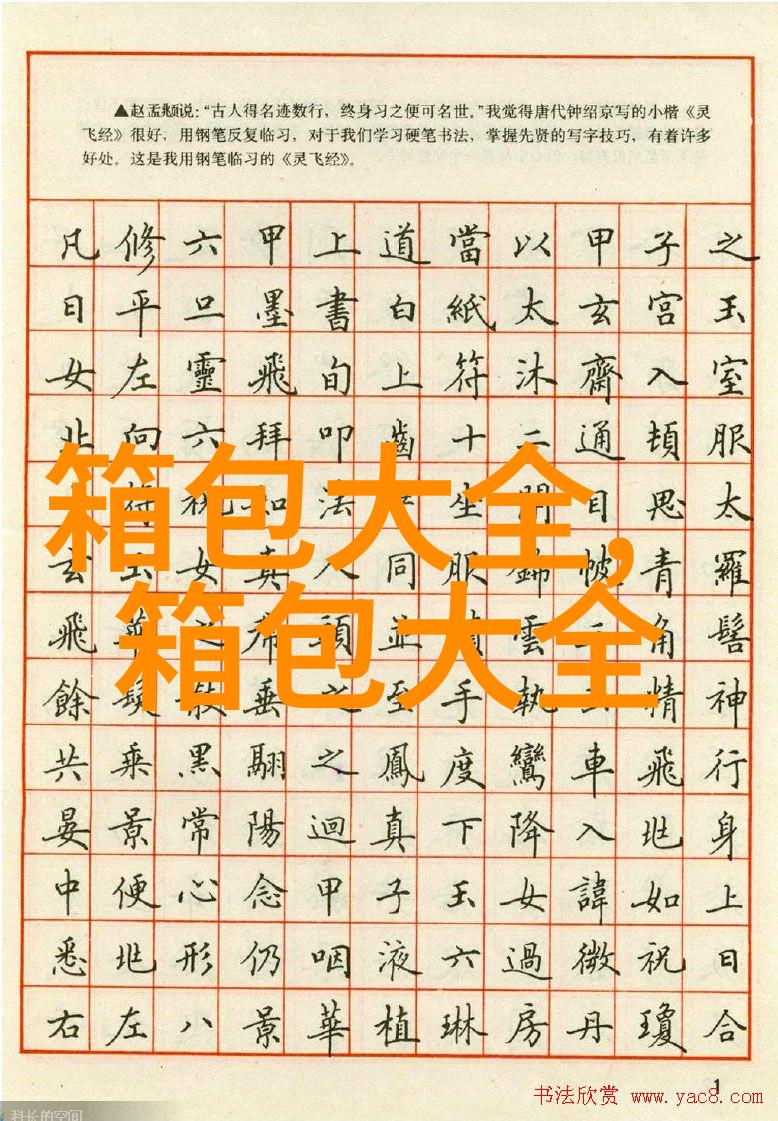 ▲赵孟頫说：“古人得名迹数行，终身习之便可名世。”我觉得唐代钟绍京写的小楷《灵
飞经》很好，用钢笔反复临习，对于我们学习硬笔书法，掌握先贤的写字技巧，有着许多
好处。这是我用钢笔临习的《灵飞经》。
凡修六甲上道當以甲子之
日平旦墨書白紙太玄宮玉
女左靈飛旬上符沐齋入室
北向六拜叩齒十二通頓服
符祝如法坐開目思太
玄玉女真人同服錦帔青羅
飛華之帬頭並頹雲三角髻
餘髮散垂之至手執二精神
共乘黑翮之鳳度鸞車飛行
晏景常陽迴真下降入北身
中便心念甲子玉女諱如上
悉北形仍咽液六過微祝曰
右左八景華植琳房丹瓊合
箱包大全,
箱包大全
1
书法欣赏 www.yac8.com
科长的空间